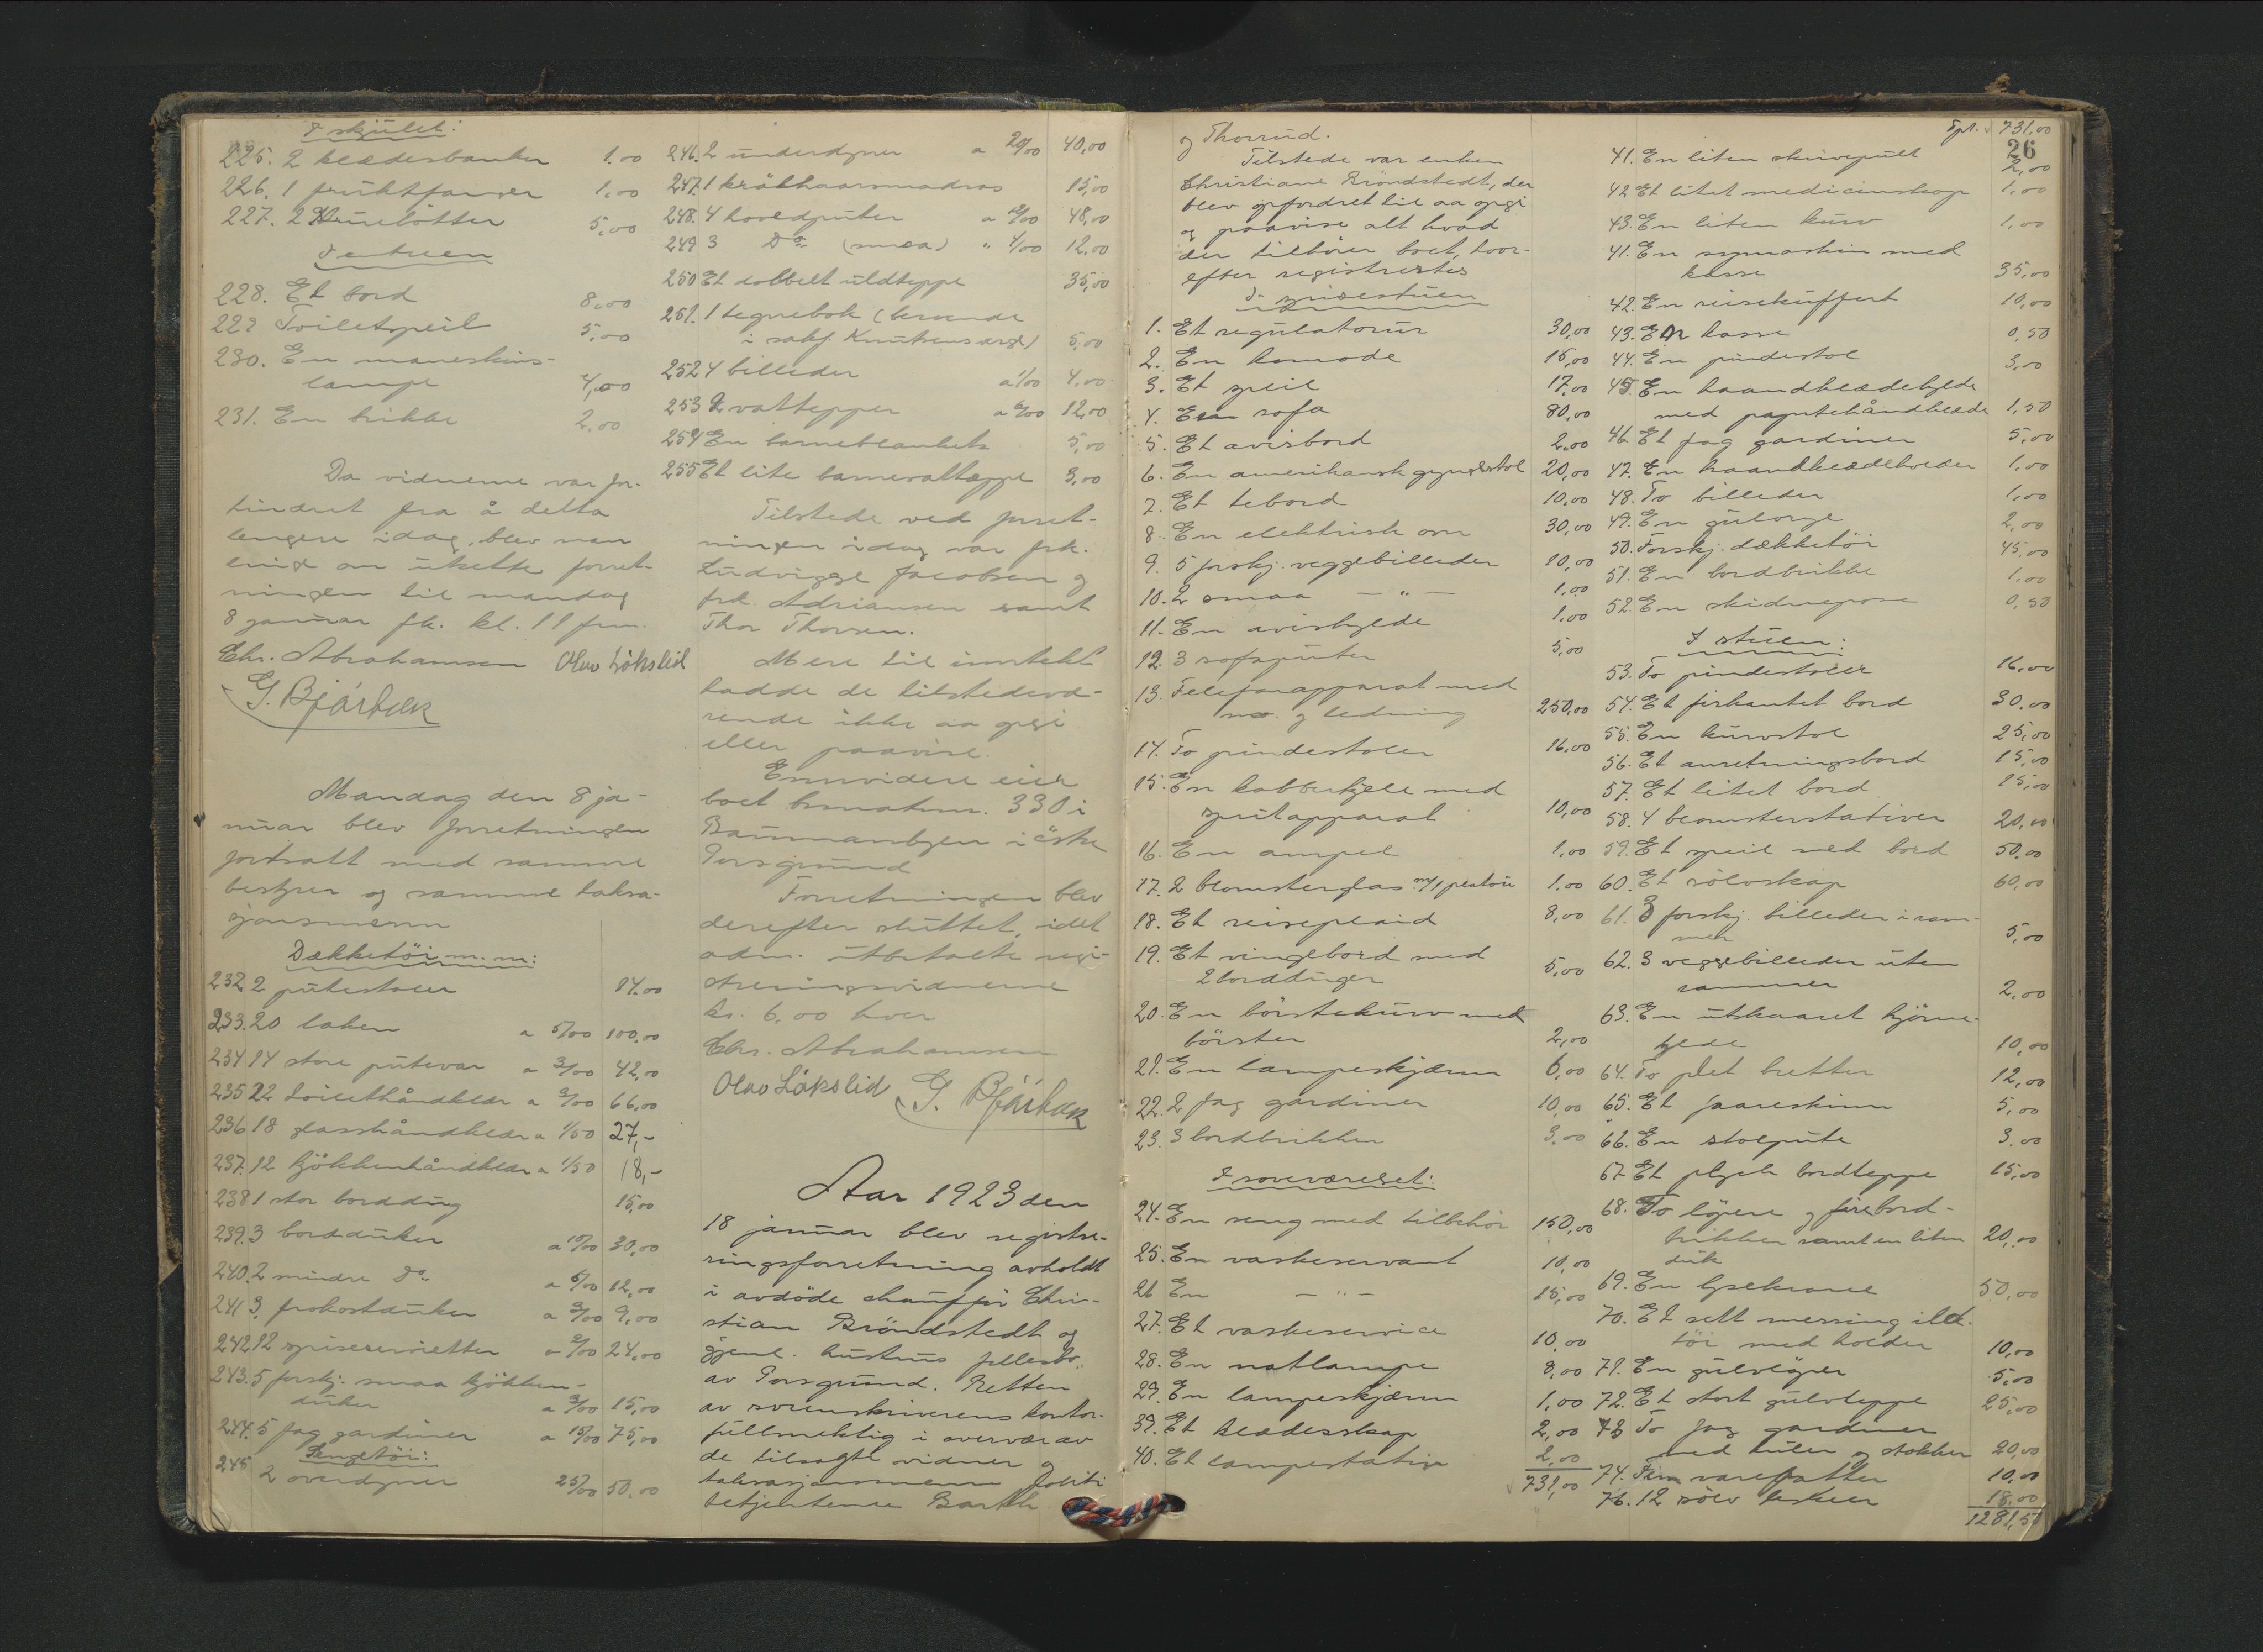 I skjulet:
225. 2 klædesbanker 1.00
226. 1 fruktpanser 1.00
227. 2 bøtter 5,00
I stuen
228. Et bord 8,00
229 Toiletspeil 5,00
230. En maaneskins-
lampe 4,00
231. En brikke 2,00
Da vidnerne var for-
hindret fra å delta
lengere idag, blev man
enig om utsette forret-
ningen til mandag
8 januar fk. kl. 11 fm.
Chr. Abrahamsen Olav Lökslid
G. Bjårbæk
Mandag den 8 ja-
nuar blev forretningen
fortsatt med samme
bestyrer og samme taksa-
sjonsmenn
Dækketöi m. m:
232 2 putestoler 14.00
233. 20 laken a 5/00 100,00
234 14 store putevar a 3/00 42,00
235 22 toiletthåndklær a 3/00 66,00
236 18 glasshåndklær a 1/50 27,-
237. 12 kjökkenhåndklær a 1/50 18,-
238 1 stor borddug 15,00
239. 3 bordduker a 10/00 30,00
240. 2 mindre do a 6/00 12,00
241 3 frokostduker a 3/00 9,00
242 12 spiseservietter a 2/00 24,00
243. 5 forskj. smaa kjökken-
duker a 3/00 15,00
244. 5 fag gardiner a 15/00 75,00
Sengetöi:
245 2 overdyner 25/00 50,00
246. 2 underdyner a 20/00 40,00
247. 1 kröllhaarsmadras 15,00
248. 4 hovedputer a 12/00 48,00
249 3 Do (smaa) " 4/00 12,00
250 Et dobbelt uldteppe 35,00
251. 1 tegnebok (beroende
i sakf. Knutsens arg) 5,00
252 4 billeder a 1/00 4,00
253 2 vattepper a 6/00 12,00
254 En barneblankets 5,00
255 Et lite barnevattæppe 3,00
Tilstede ved forret-
ningen idag var frk.
Ludvigge Jacobsen og
frk. Adriansen samt
Thor Thorsen.
Mere til inntekt
hadde de tilstedevæ-
rende ikke aa opgi
eller paavise.
Ennvidere eier
boet brmatnr. 330 i
Baumannbyen i östre
Porsgrund
Forretningen blev
derefter sluttet, idet
adm. utbetalte regi-
streringsvidnerne
kr. 6,00 hver
Chr. Abrahamsen
Olav Lökslid G. Bjårbæk
Aar 1923 den
18 januar blev registre-
ringsforretning avholdt
i avdöde chauffør Chri-
stian Bröndstedt og
gjenl. hustrus fellesbo
av Porsgrund. Retten
av sorenskriverens kontor-
fullmektig i overvær av
de tilsagte vidner og
taksasjonsmenn politi
betjentene Barth
26
og Thorrud.
Tilstede var enken
Christiane Bröndstedt, der
blev opfordret til aa opgi
og paavise alt hvad
der tilhörer boet, hvor-
efter registrertes
I spisestuen
1. Et regulatorur 30,00
2. En komode 15,00
3. Et speil 17,00
4. En sofa 80,00
5. Et avisbord 2,00
6. En amerikansk gyngestol 20,00
7. Et tebord 10,00
8. En elektrisk ovn 30,00
9. 5 forskj. veggebilleder 10,00
10. 2 smaa — " — 1,00
11. En avishylde 1,00
12. 3 sofaputer 5,00
13. Telefonapparat med
no. og ledning 250,00
14. To pindestoler 16,00
15. En kobberkjele med
spritapparat 10,00
16. En ampel 1,00
17. 2 blomsterglas m/1 platöir 1,00
18. Et reiseplaid 8,00
19. Et vingebord med
2 bordduger 5,00
20. En börstekurv med
börster 2,00
21. En lampeskjærm 6,00
22. 2 fag gardiner 10,00
23. 3 bordbrikker 3,00
I soveværelset:
24. En seng med tilbehör 150,00
25. En vaskeservant 10,00
26 En — " — 15,00
27. Et vaskeservice 10,00
28. En natlampe 8,00
29. En lampeskjærm 1,00
39. Et klædesskap 2,00
40. Et lampestativ 2,00
731,00
Tpt. 731,00
41. En liten skrivepult 2,00
42 Et litet medicinskap 1,00
43. En liten kurv 1,00
41. En symaskin med
kasse 35,00
42. En reisekuffert 10,00
43. En kasse 0,50
44. En pindestol 3,00
45. En haandklædehylde
med pyntehåndklæde 1,50
46. Et fag gardiner 5,00
47. En haandklædeholder 1,00
48. To billeder 1,00
49. En gulorge 2,00
50. Forskj. dækketöi 45,00
51. En bordbrikke 1,00
52. En skidnepose 0,50
I stuen:
53. To pindestoler 16,00
54. Et firkantet bord 30,00
55. En kurvstol 25,00
56. Et anretningsbord 15,00
57. Et litet bord 15,00
58. 4 blomsterstativer 20,00
59. Et speil med bord 50,00
60. Et sölvskap 60,00
61. 3 forskj. billeder i ram-
mer 5,00
62. 3 veggebilleder uten
rammer 2,00
63. En utskaaret hjörne-
hylde 10,00
64. To plet bretter 12,00
65. Et faareskinn 5,00
66. En stolpute 3,00
67. Et plysch bordteppe 15,00
68. To löpere og fire bord-
brikker samt en liten 20,00
duk
69. En lysekrone 50,00
70. Et sett messing ild-
töi med holder 10,00
71. En gulvlöper 5,00
72. Et stort gulvteppe 25,00
73 To fag gardiner
med luter og stokker 20,00
74. Fem vasepotter 10,00
76. 12 sölv teskeer 18,00
1281,50